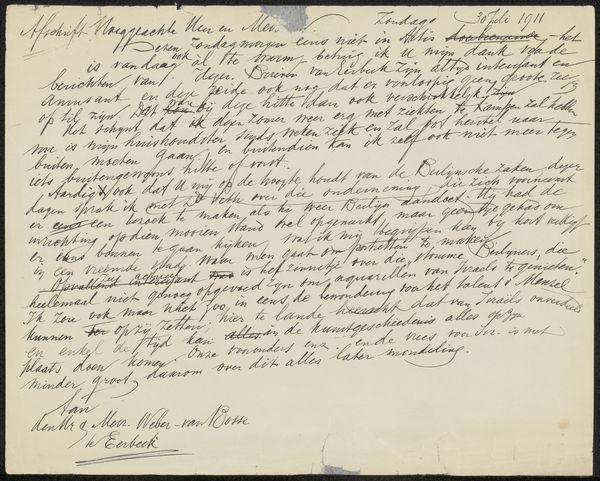 Afschrift Hooggeachte Heer en Mevr. Zondags 30 Juli 1911
Dezen Zondagmorgen eens niet in Artis - het
is vandaag ook al te warm, betuig ik U mijn dank voor de
berichten van Brieven van Eerbeek zijn altijd interessant en
amusant en deze zeide ook nog dat er voorloopig geen groote zee
op til zijn. Dat bij deze hitte dan ook verschrikkelijk zijn
Het schijnt, dat ik dezen zomer weer erg met ziekten te kampen zal hebben
nu is mijn huishoudster sinds weken ziek en zal tot herstel naar
buiten moeten gaan, en buitendien kan ik zelf ook niet meer tegen
iets buitengewoons hitte of vorst.
Aardig ook dat U mij op de hoogte houdt van de Berlijnsche zaken, dezer
dagen sprak ik met over die onderneming, die zich voornaamt
er een bezoek te maken, als hij weer Berlijn aandoet. Hij had de
inrichting op dien mooien stand wel opgemerkt, maar geen gehad om
er eens binnen te gaan kijken, wat ik mij begrijpen kan bij kort verblijf
in een vreemde stad, waar men gaat om portretten te maken.
Opvallend is het zinnetje over die "stomme Berlijners, die
heelemaal niet genoeg opgevoed zijn om aquarellen van Israels te genieten".
Ik zou ook maar niet zoo in eens de bewondering voor het talent v. Menzel
kunnen opzij zetten; hier te lande, dat van Israels
en enkel de tijd kan in de kunstgeschiedenis alles op zijn
plaats doen komen. Onze enz. en de vrees voor is met
minder groot, daarom over dit alles later mondeling.
Aan
den Hr & Mevr. Weber-van Bosse
te Eerbeek